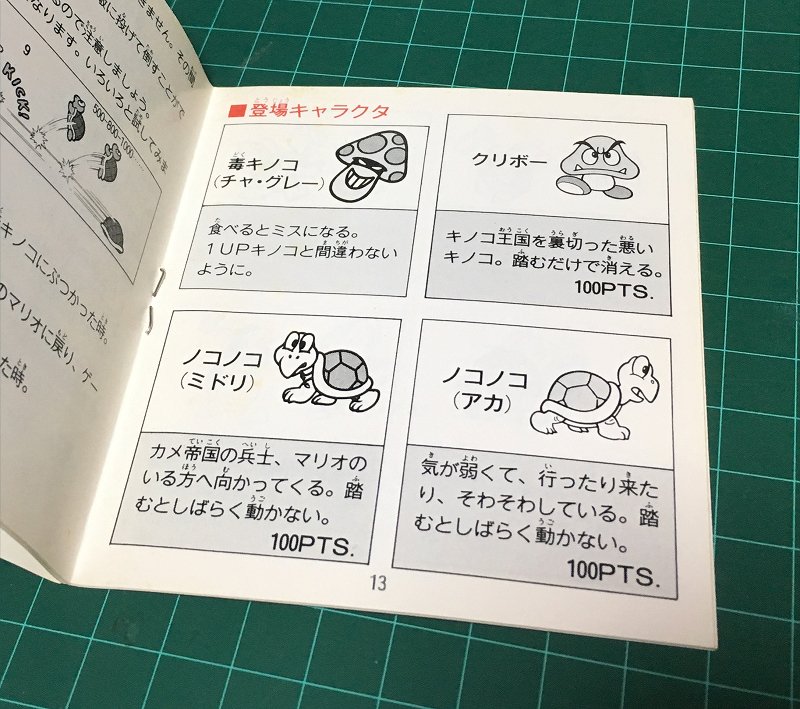 きません。その場
敵に投げて倒すことがで
るので注意しましょう。
なります。いろいろと試してみま
9
KICK!
500-800-1000
キノコにぶつかった時。
のマリオに戻り、ゲー
た時。
■登場キャラクタ
毒キノコ
(チャ・グレー)
食べるとミスになる。
1UPキノコと間違わない
ように。
クリボー
キノコ王国を裏切った悪い
キノコ。踏むだけで消える。
100PTS.
ノコノコ
(ミドリ)
カメ帝国の兵士、マリオの
いる方へ向かってくる。踏
むとしばらく動かない。
100PTS.
ノコノコ
(アカ)
気が弱くて、行ったり来た
り、そわそわしている。踏
むとしばらく動かない。
100PTS.
13